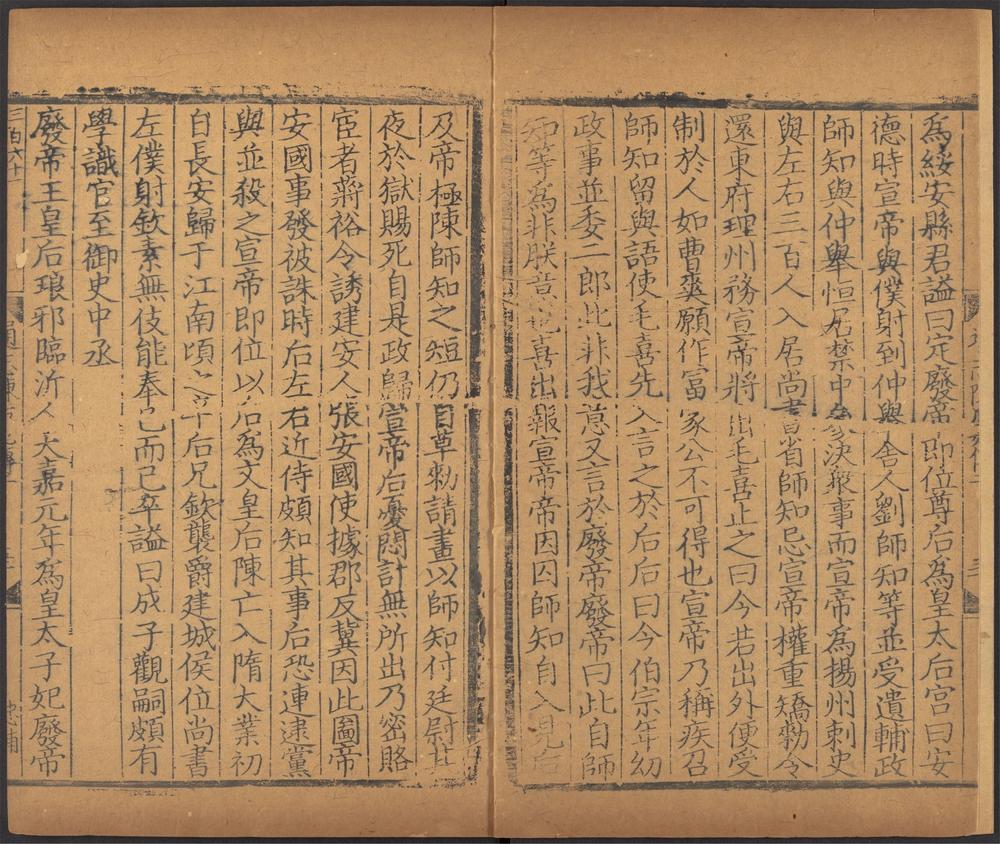 爲綏安縣君謚曰定廢帝即位尊后爲皇太后宫曰安
德時宣帝與僕射到仲舉舍人劉師知等並受遺輔政
師知與仲舉恒居禁中參決衆事而宣帝爲揚州刺史
與左右三百人入居尚書省師知忌宣帝權重矯勑令
還東府理州務宣帝將出毛喜止之曰今若出外便受
制於人如曹爽願作富家公不可得也宣帝乃稱疾召
師知留與語使毛喜先入言之於后后曰今伯宗年幼
政事並委二郎此非我意又言於廢帝廢帝曰此自師
知等爲非朕意也喜出報宣帝帝因囚師知自入見后
及帝極陳師知之短仍自草勑請畫以師知付廷尉其
夜於獄賜死自是政歸宣帝后憂悶計無所出乃密賂
宦者蔣裕令誘建安人張安國使據郡反冀因此圖帝
安國事發被誅時后左右近侍頗知其事后恐連逮黨
與並殺之宣帝即位以后爲文皇后陳亡入隋大業初
自長安歸于江南頃之卒后兄欽襲爵建城侯位尚書
左僕射欽素無伎能奉己而已卒謚曰成子觀嗣頗有
學識官至御史中丞
廢帝王皇后琅邪臨沂人天嘉元年爲皇太子妃廢帝